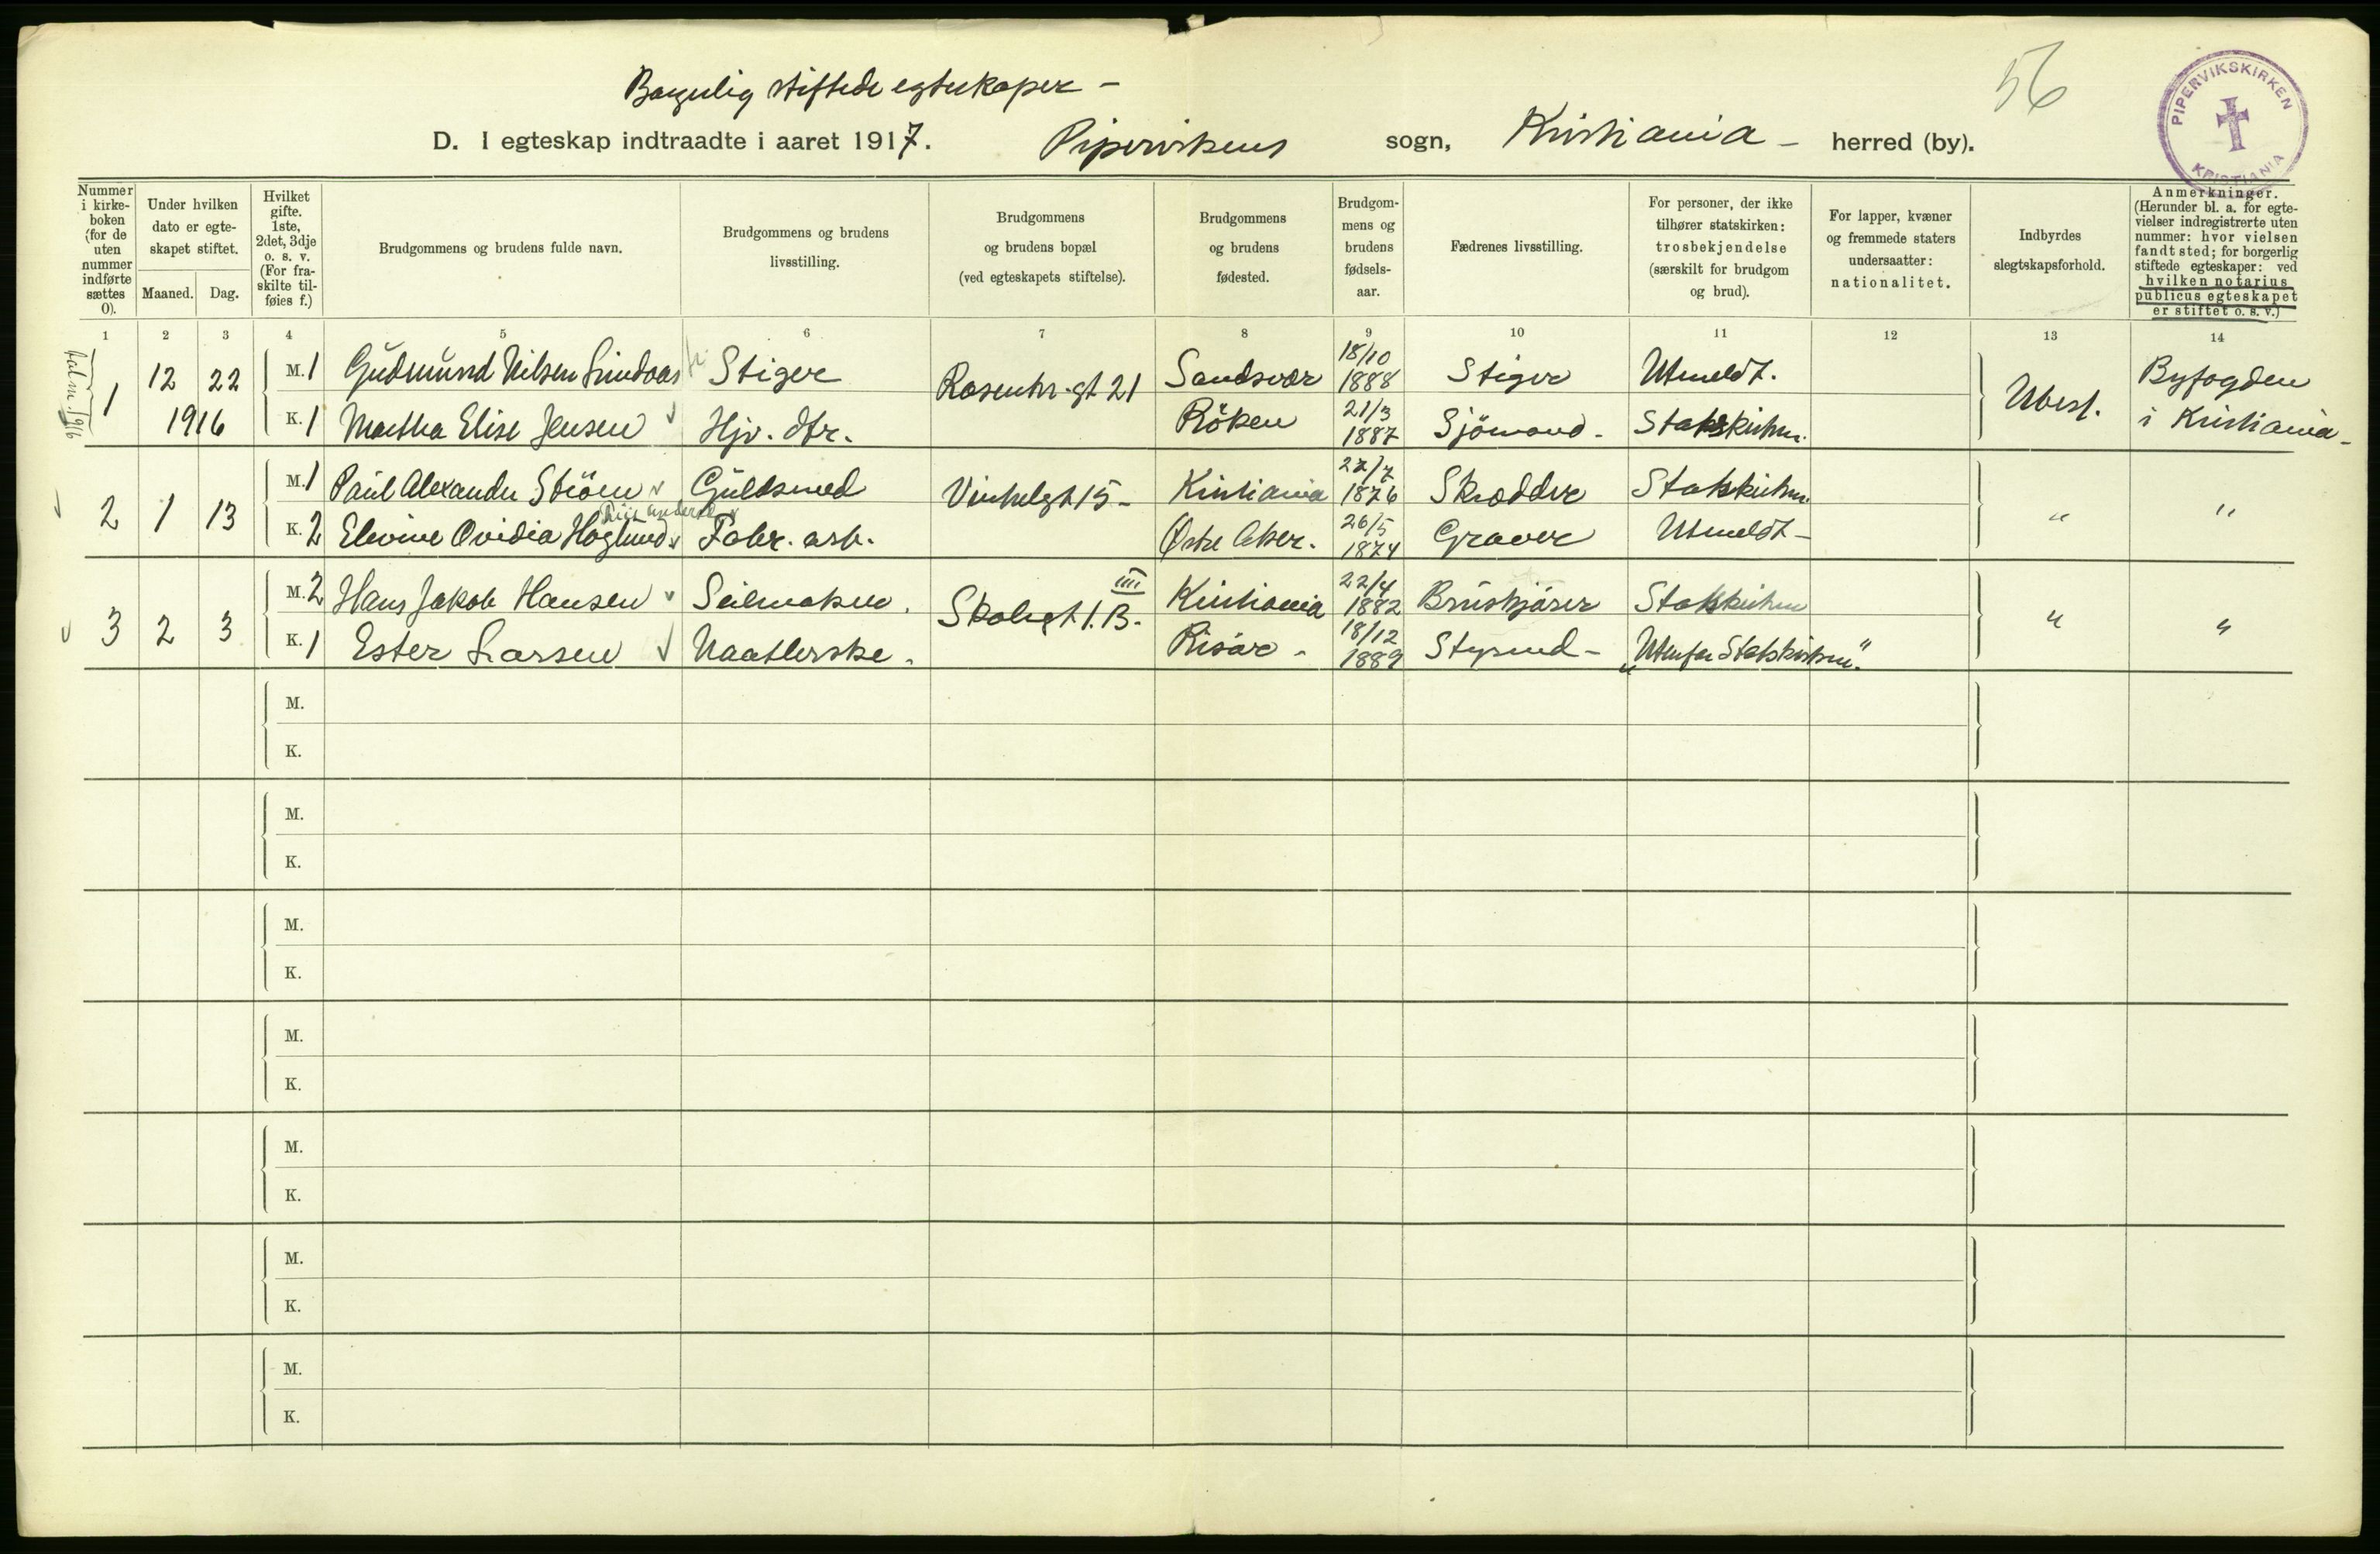 56
PIPERVIKSKIRKEN
KRISTIANIA
Borgerlig stiftede egteskaper –
D. I egteskap indtraadte i aaret 1917. Pipervikens sogn, Kristiania – herred (by).
Nummer i kirke-boken (for de uten nummer indførte sættes 0).
Under hvilken dato er egte-skapet stiftet.
Maaned. Dag.
Hvilket gifte. 1ste, 2det, 3dje o. s. v. (For fra-skilte til-føies f.)
Brudgommens og brudens fulde navn.
Brudgommens og brudens livsstilling.
Brudgommens og brudens bopæl (ved egteskapets stiftelse).
Brudgommens og brudens fødested.
Brudgom-mens og brudens fødsels-aar.
Fædrenes livsstilling.
For personer, der ikke tilhører statskirken: trosbekjendelse (særskilt for brudgom og brud).
For lapper, kvæner og fremmede staters undersaatter: nationalitet.
Indbyrdes slegtskapsforhold.
Anmerkninger. (Herunder bl. a. for egte-vielser indregistrerte uten nummer: hvor vielsen fandt sted; for borgerlig stiftede egteskaper: ved hvilken notarius publicus egteskapet er stiftet o. s. v.)
1 2 3 4 5 6 7 8 9 10 11 12 13 14
1 12 22 M. 1 Gudmund Nilsen Lindaas Stiger Rosenkr.gt 21 Sandsvær 18/10 1888 Stiger Utmeldt. Ubesl. Byfogden
1916 K. 1 Martha Elise Jensen Hjv. dtr. Röken 21/3 1887 Sjömand – Statskirken. i Kristiania –
2 1 13 M. 1 Paul Alexander Ström Guldsmed Vinkelgt 15 – Kristiania 1876 Skrædder Statskirken. " "
K. 2 Elevine Ovidia Høglund Fabr. arb. Østre Aker. 26/5 1874 Graver Utmeldt –
3 2 3 M. 2 Hans Jakob Hansen Seilmaker. Skolegt 1.B. IIII Kristiania 22/4 1882 Bruskjörer Statskirken " "
K. 1 Ester Larsen Naatlerske. Risör – 18/12 1889 Styrmd – „Utenfor Statskirken".
M.
K.
M.
K.
M.
K.
M.
K.
M.
K.
M.
K.
M.
K.